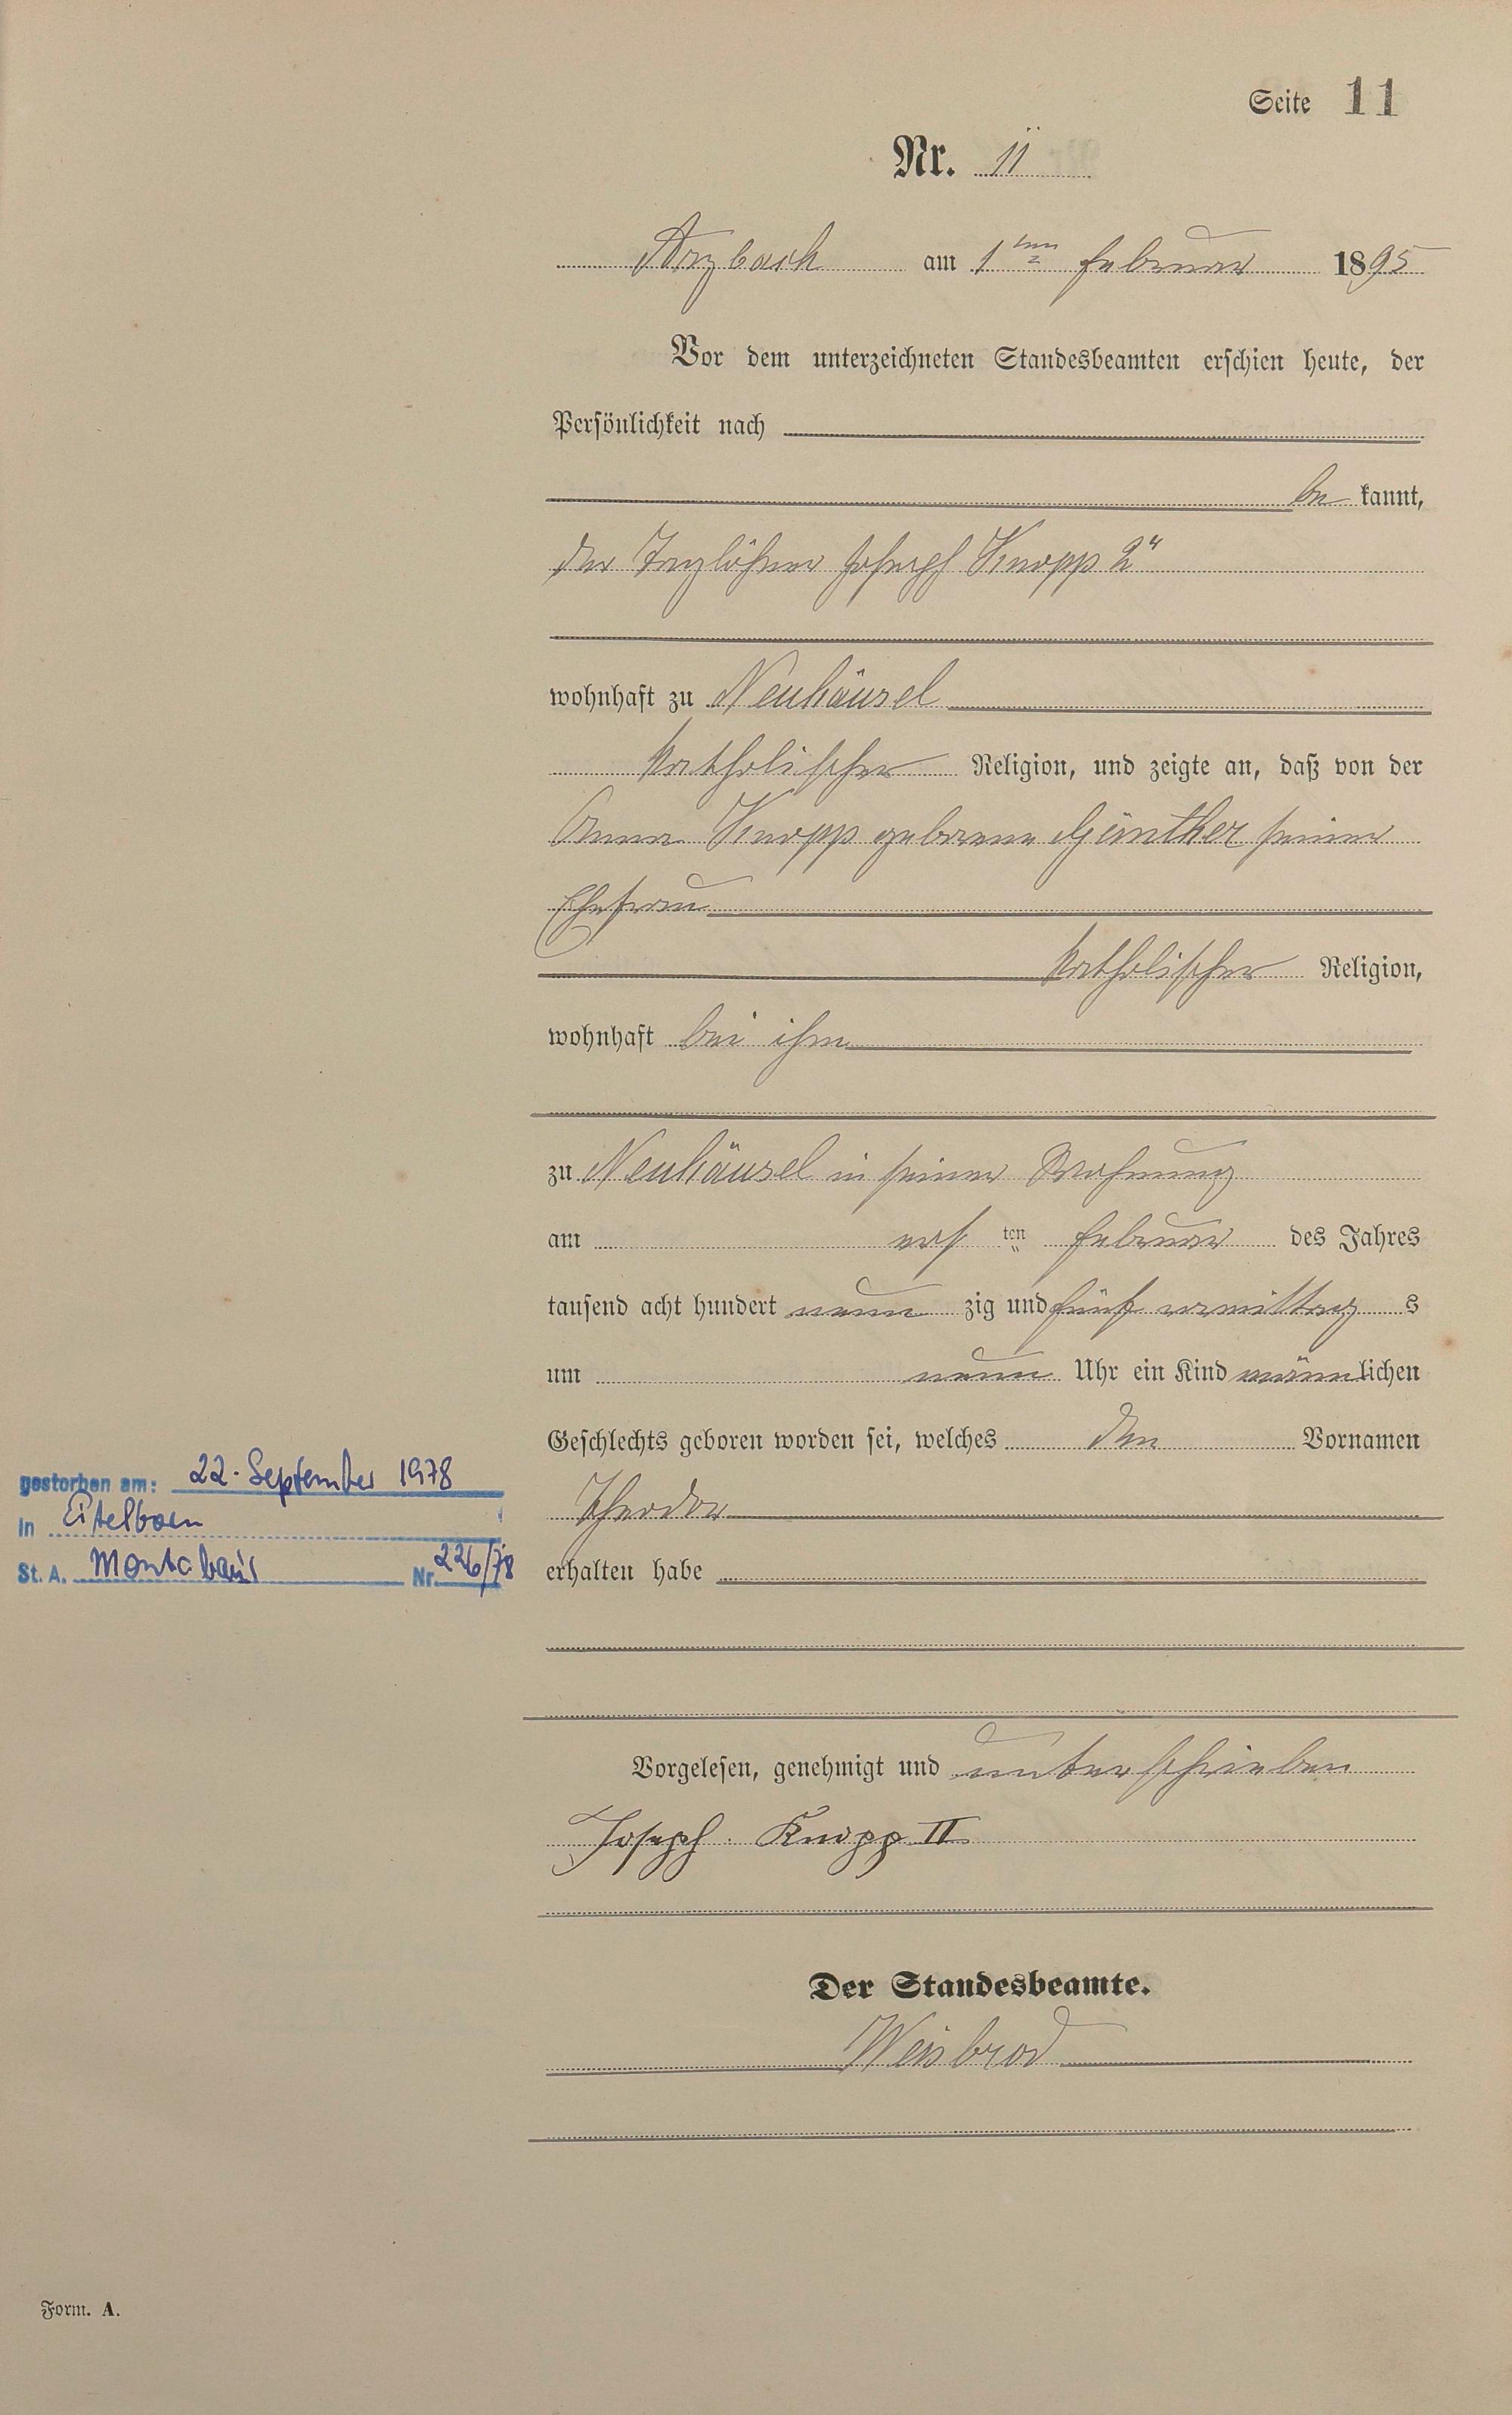 Seite 11
Nr. 11
Arzbach am 1ten Februar 1895
Vor dem unterzeichneten Standesbeamten erschien heute, der
Persönlichkeit nach
be kannt,
der Taglöhner Joseph Knopp 2r
wohnhaft zu Neuhäusel
katholischer Religion, und zeigte an, daß von der
Anna Knopp geborene Günther seiner
Ehefrau
katholischer Religion,
wohnhaft bei ihm
zu Neuhäusel in seiner Wohnung
am ersten Februar des Jahres
tausend acht hundert neun zig und fünf vormittag s
um neun Uhr ein Kind männlichen
Geschlechts geboren worden sei, welches den Vornamen
Theodor
erhalten habe
gestorben am: 22. September 1978
in Eitelborn
St. A. Montabaur Nr. 226/78
Vorgelesen, genehmigt und unterschrieben
Joseph Knopp II
Der Standesbeamte.
Weisbrod
Form. A.